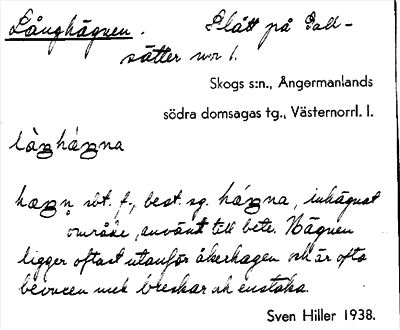 Långhägnen. Slått på Gall-
sätter nr 1.
Skogs s:n., Ångermanlands
södra domsagas tg., Västernorrl. l.
sbt. f., best. sg. inhägnat
område, använt till bete. Hägnen
ligger oftast utanför åkerhagen och är ofta
bevuxen med breskar och enstaka.
Sven Hiller 1938.